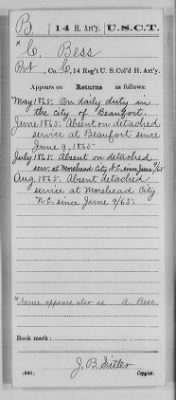 B. 14 H. Art'y. U.S.C.T.
* C. Bess
Pvt, Co. C, 14 Reg't U. S. Col'd H. Art'y.
Appears on Returns as follows:
May 1865. On daily duty in
the city of Beaufort.
June 1865. Absent on detached
service at Beaufort since
June 9, 1865
July 1865. Absent on detached
serv. at Morehead City N.C. since June 9/65
Aug. 1865. Absent detached
service at Morehead City
N.C. since June 9/65.
*Name appears also as A. Bess
Book mark:
(546) Copyist.